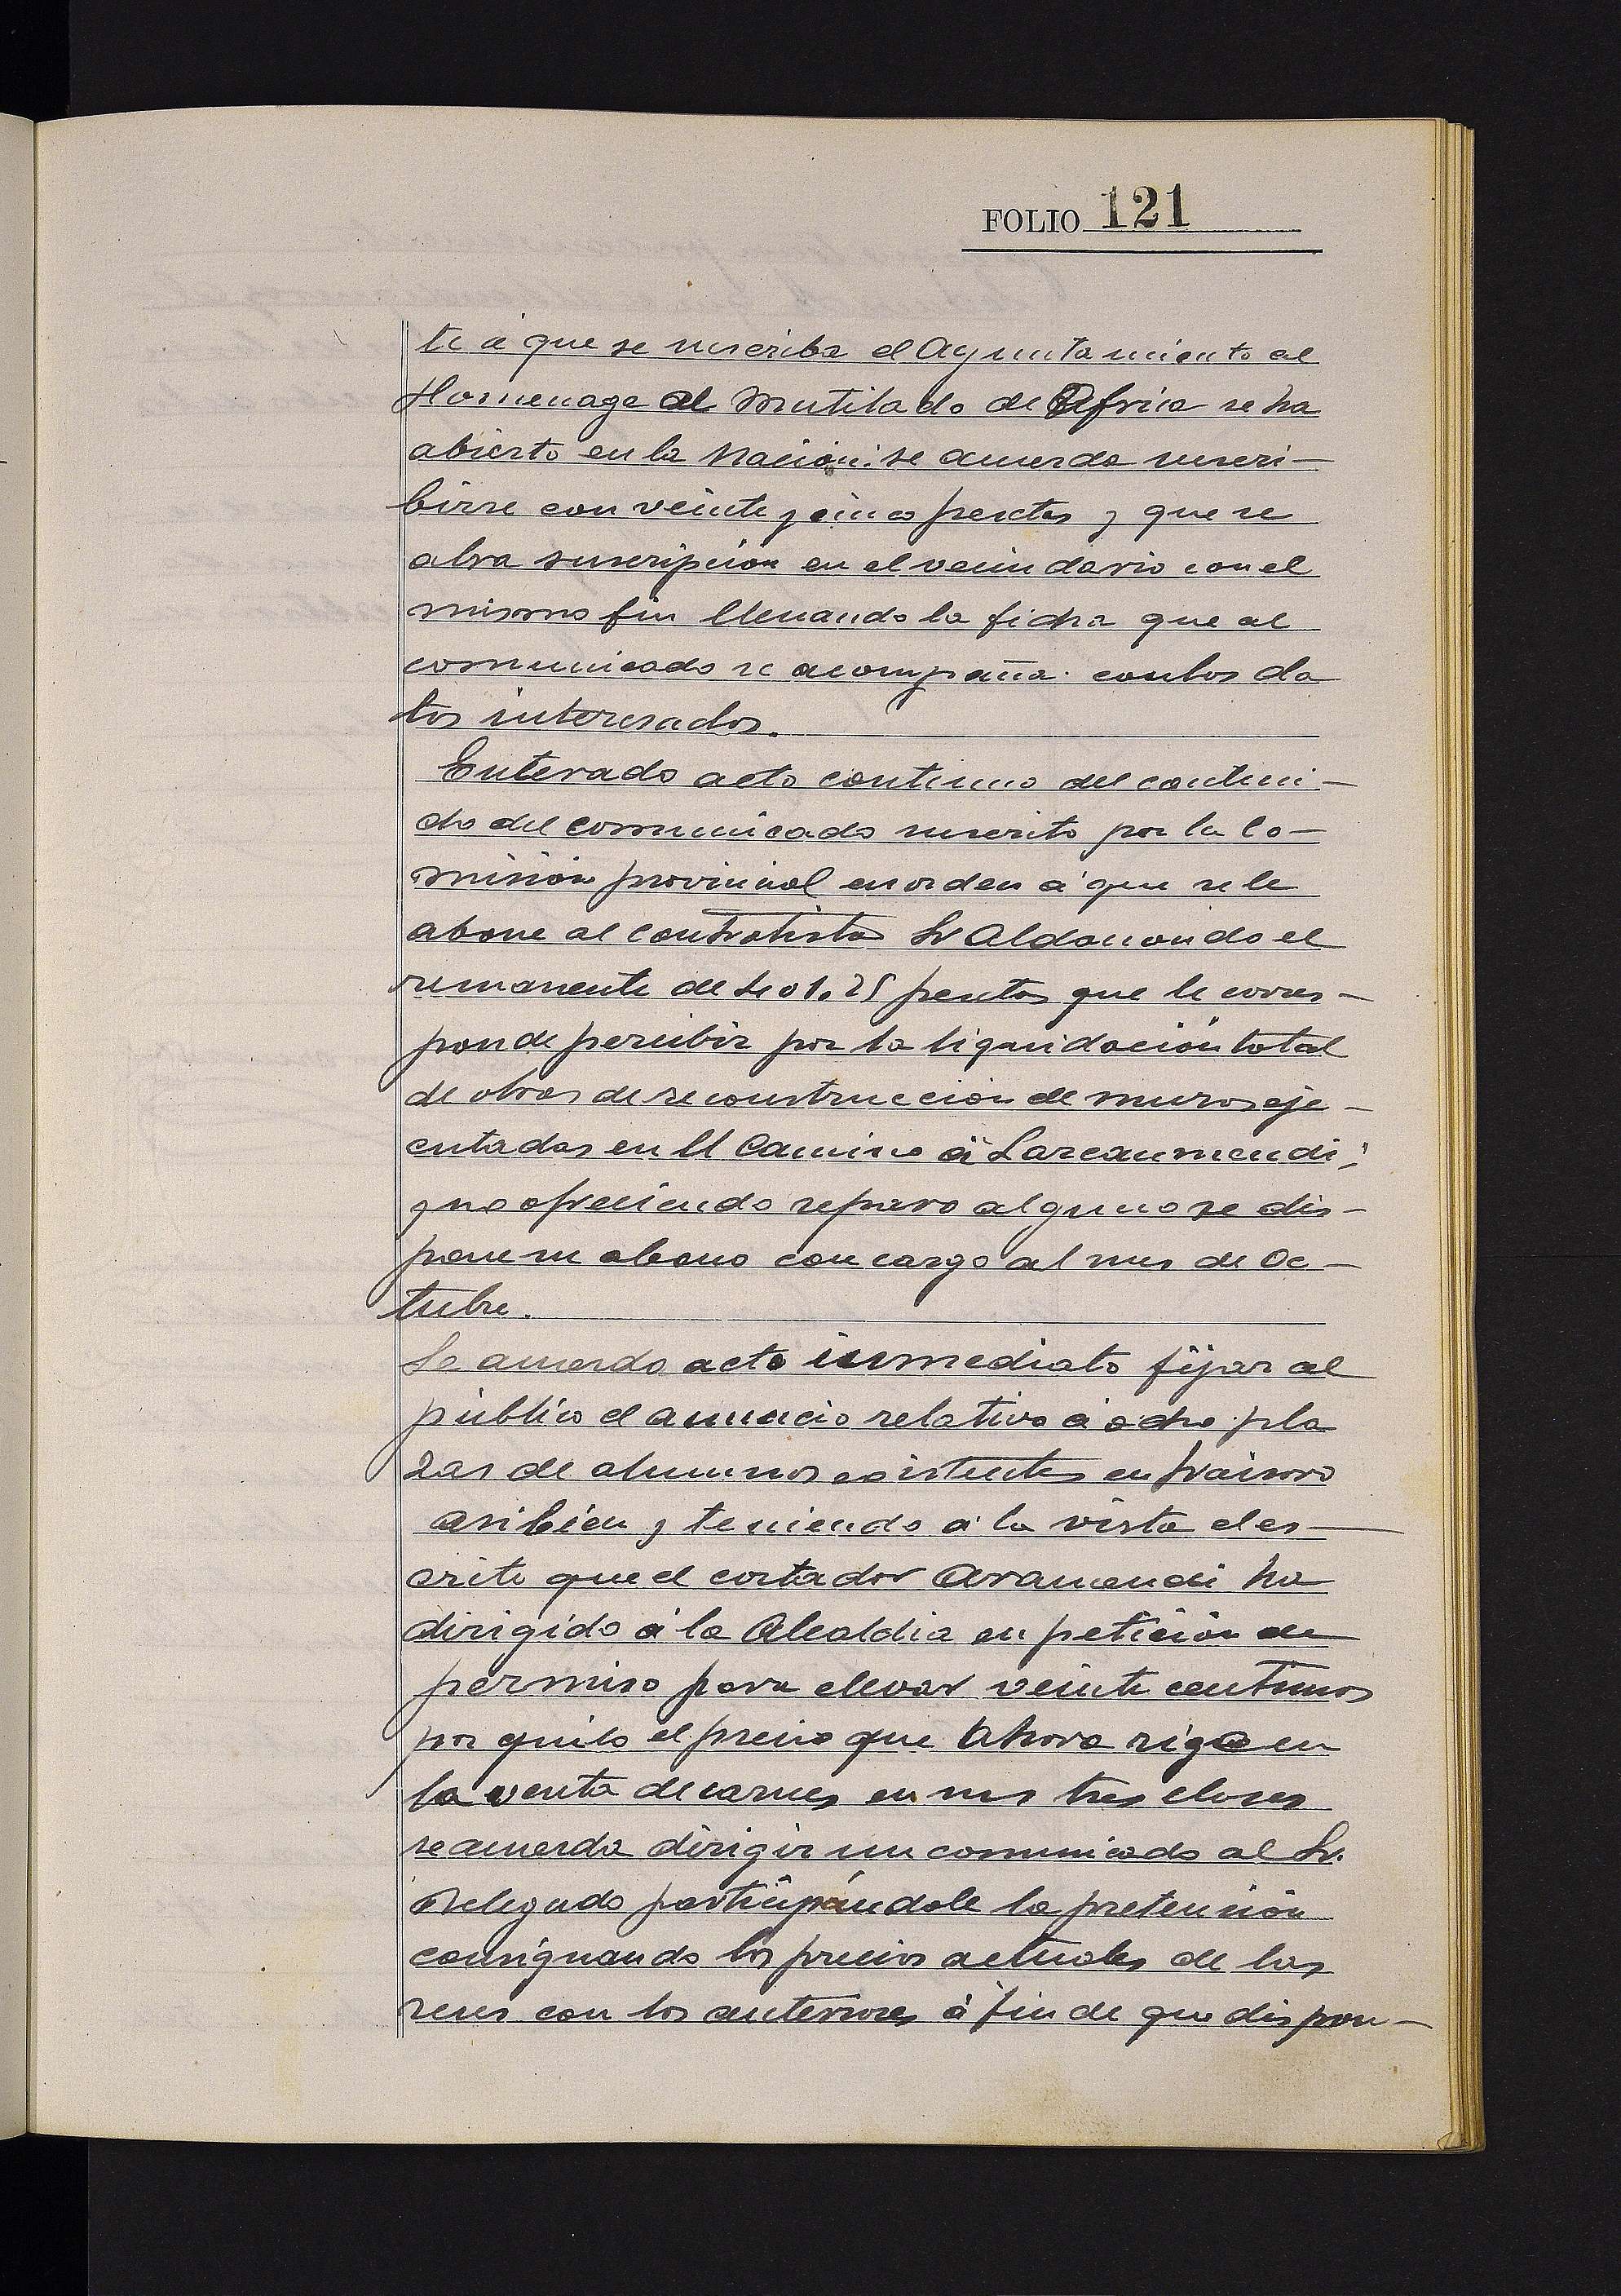 FOLIO 121
te á que se suscriba el Ayuntamiento al
Homenage al Mutilado de Africa se ha
abierto en la Nación: se acuerda suscri-
birse con veinte y cinco pesetas y que se
abra suscripcion en el vecindario con el
mismo fin llenando la ficha que al
comunicado se acompaña con los da
tos interesados.
Enterado acto continuo del conteni-
do del comunicado suscrito por la Co-
misión provincial en orden á que se le
abone al contratista Sr Aldanondo el
remanente de 401.25 pesetas que le corres-
ponde percibir por la liquidación total
de obras de reconstrucción de muros eje-
cutadas en el Camino á Larcaumendi;
y no ofreciendo reparo alguno se dis-
pone su abono con cargo al mes de Oc-
tubre.
Se acuerda acto inmediato fijar al
público el anuncio relativo á ocho pla
zas de alumnos existentes en Fraisoro
asi bien y teniendo á la vista el es-
crito que el cortador Aramendi ha
dirigido á la Alcaldia en petición de
permiso para elevar veinte centimos
por quilo el precio que ahora rige en
la venta de carnes en sus tres clases
se acuerda dirigir un comunicado al Sr.
Delegado participándole la pretensión
consignando los precios actuales de las
reses con los anteriores á fin de que dispon-